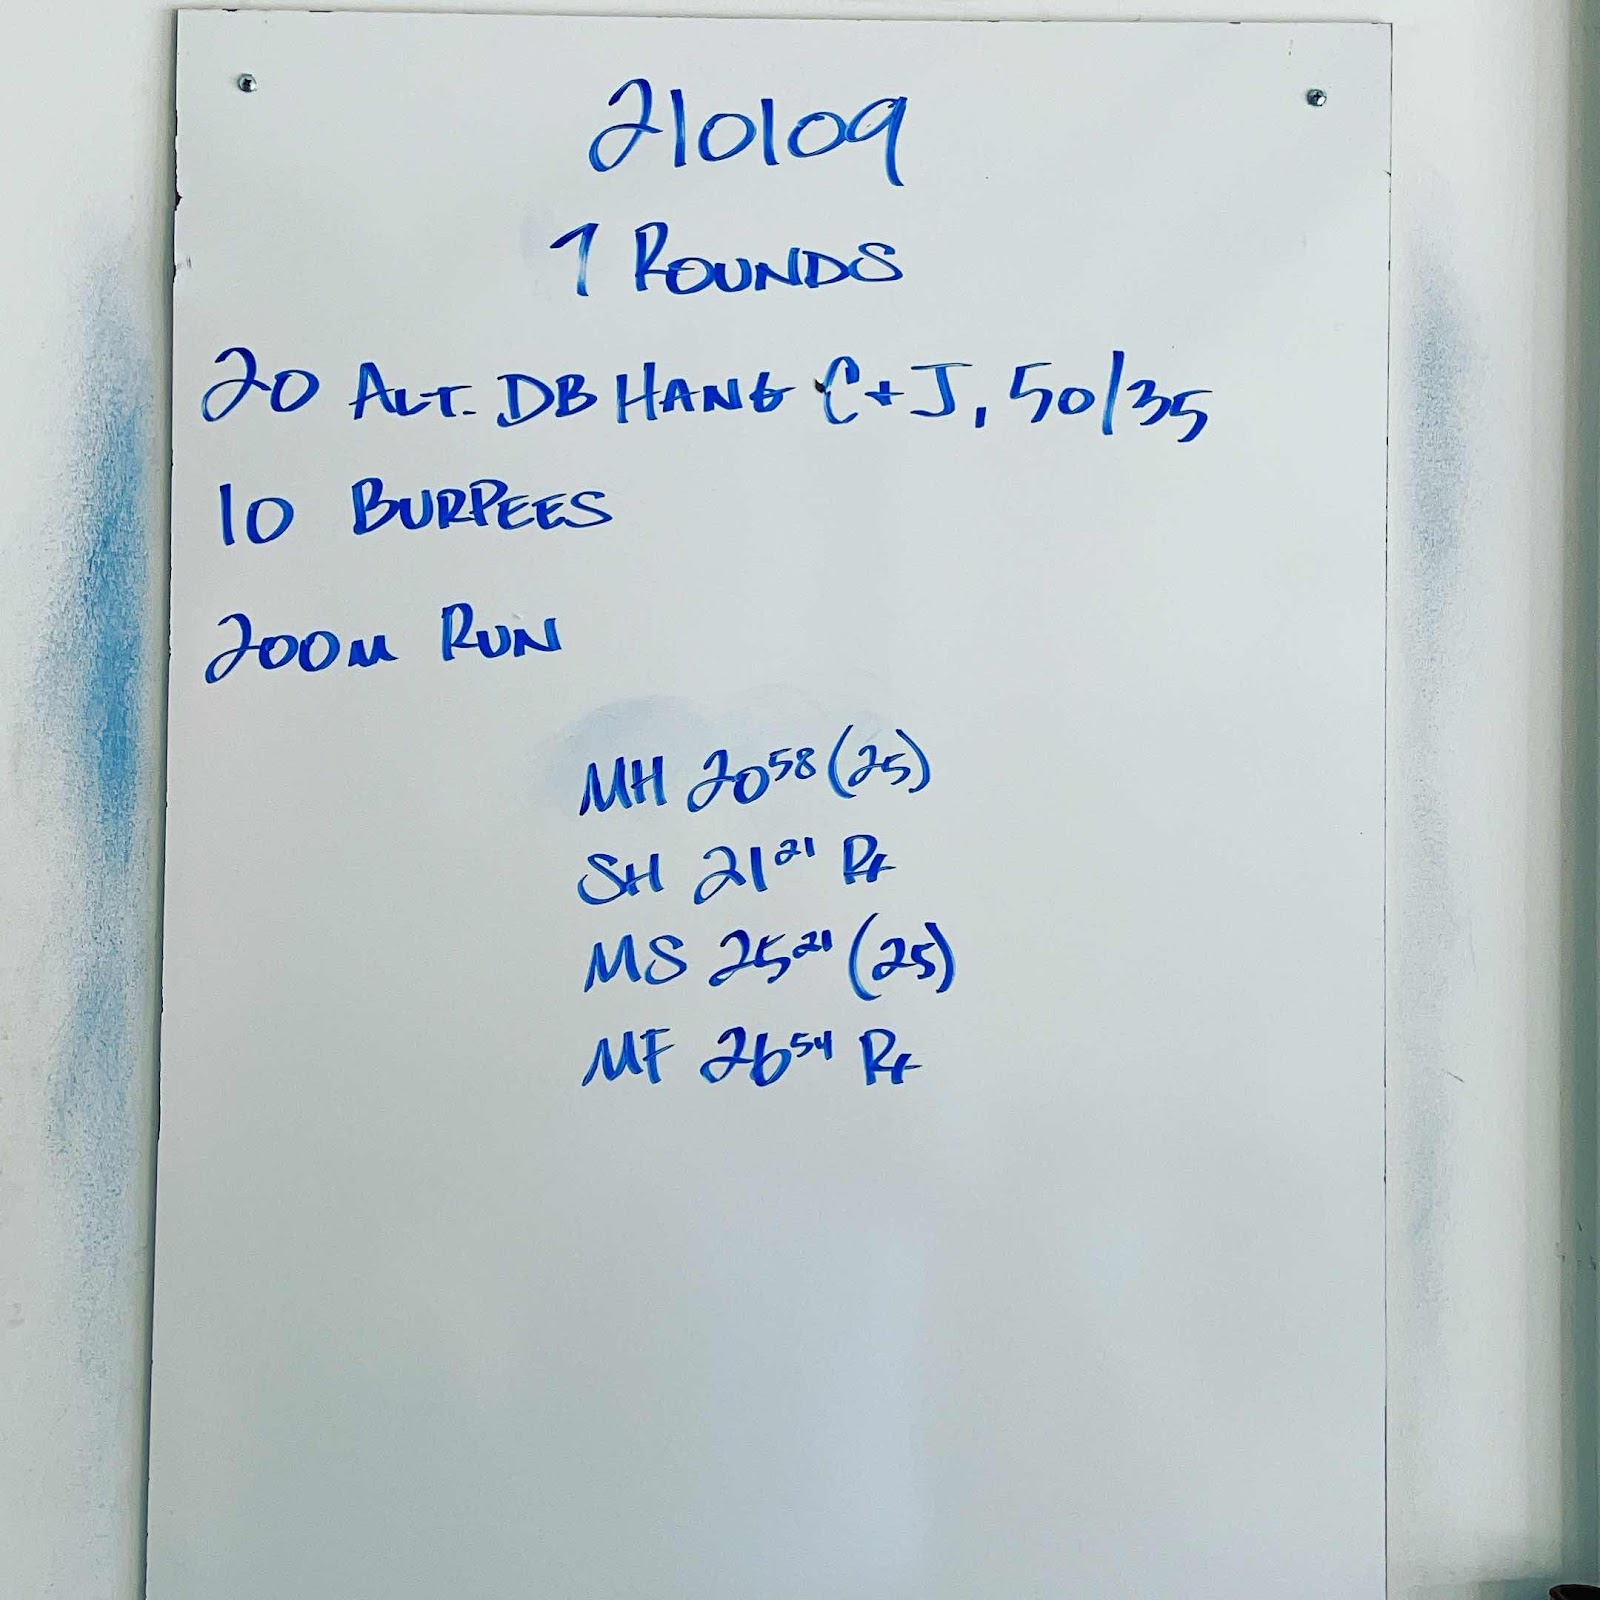 210109
7 ROUNDS
20 ALT. DB HANG C+J, 50/35
10 BURPEES
200M RUN
MH 20⁵⁸ (25)
SH 21²¹ Rx
MS 25²¹ (25)
MF 26⁵⁴ Rx